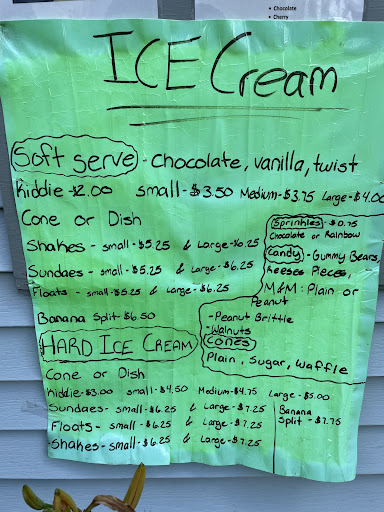 • Chocolate
• Cherry
ICE Cream
Soft serve - chocolate, vanilla, twist
Kiddie-$2.00 small-$3.50 Medium-$3.75 Large-$4.00
Cone or Dish
Shakes - small-$5.25 & Large-$6.25
Sundaes - small-$5.25 & Large-$6.25
Floats - small-$5.25 & Large-$6.25
Banana Split-$6.50
Sprinkles-$0.75
Chocolate or Rainbow
Candy - Gummy Bears,
Reeses Pieces,
M&M: Plain or
Peanut
-Peanut Brittle
-Walnuts
Cones
Plain, Sugar, Waffle
HARD ICE CREAM
Cone or Dish
Kiddie-$3.00 small-$4.50 Medium-$4.75 Large-$5.00
Sundaes-small-$6.25 & Large-$7.25
Floats-small-$6.25 & Large-$7.25
Shakes-small-$6.25 & Large-$7.25
Banana
Split-$7.75